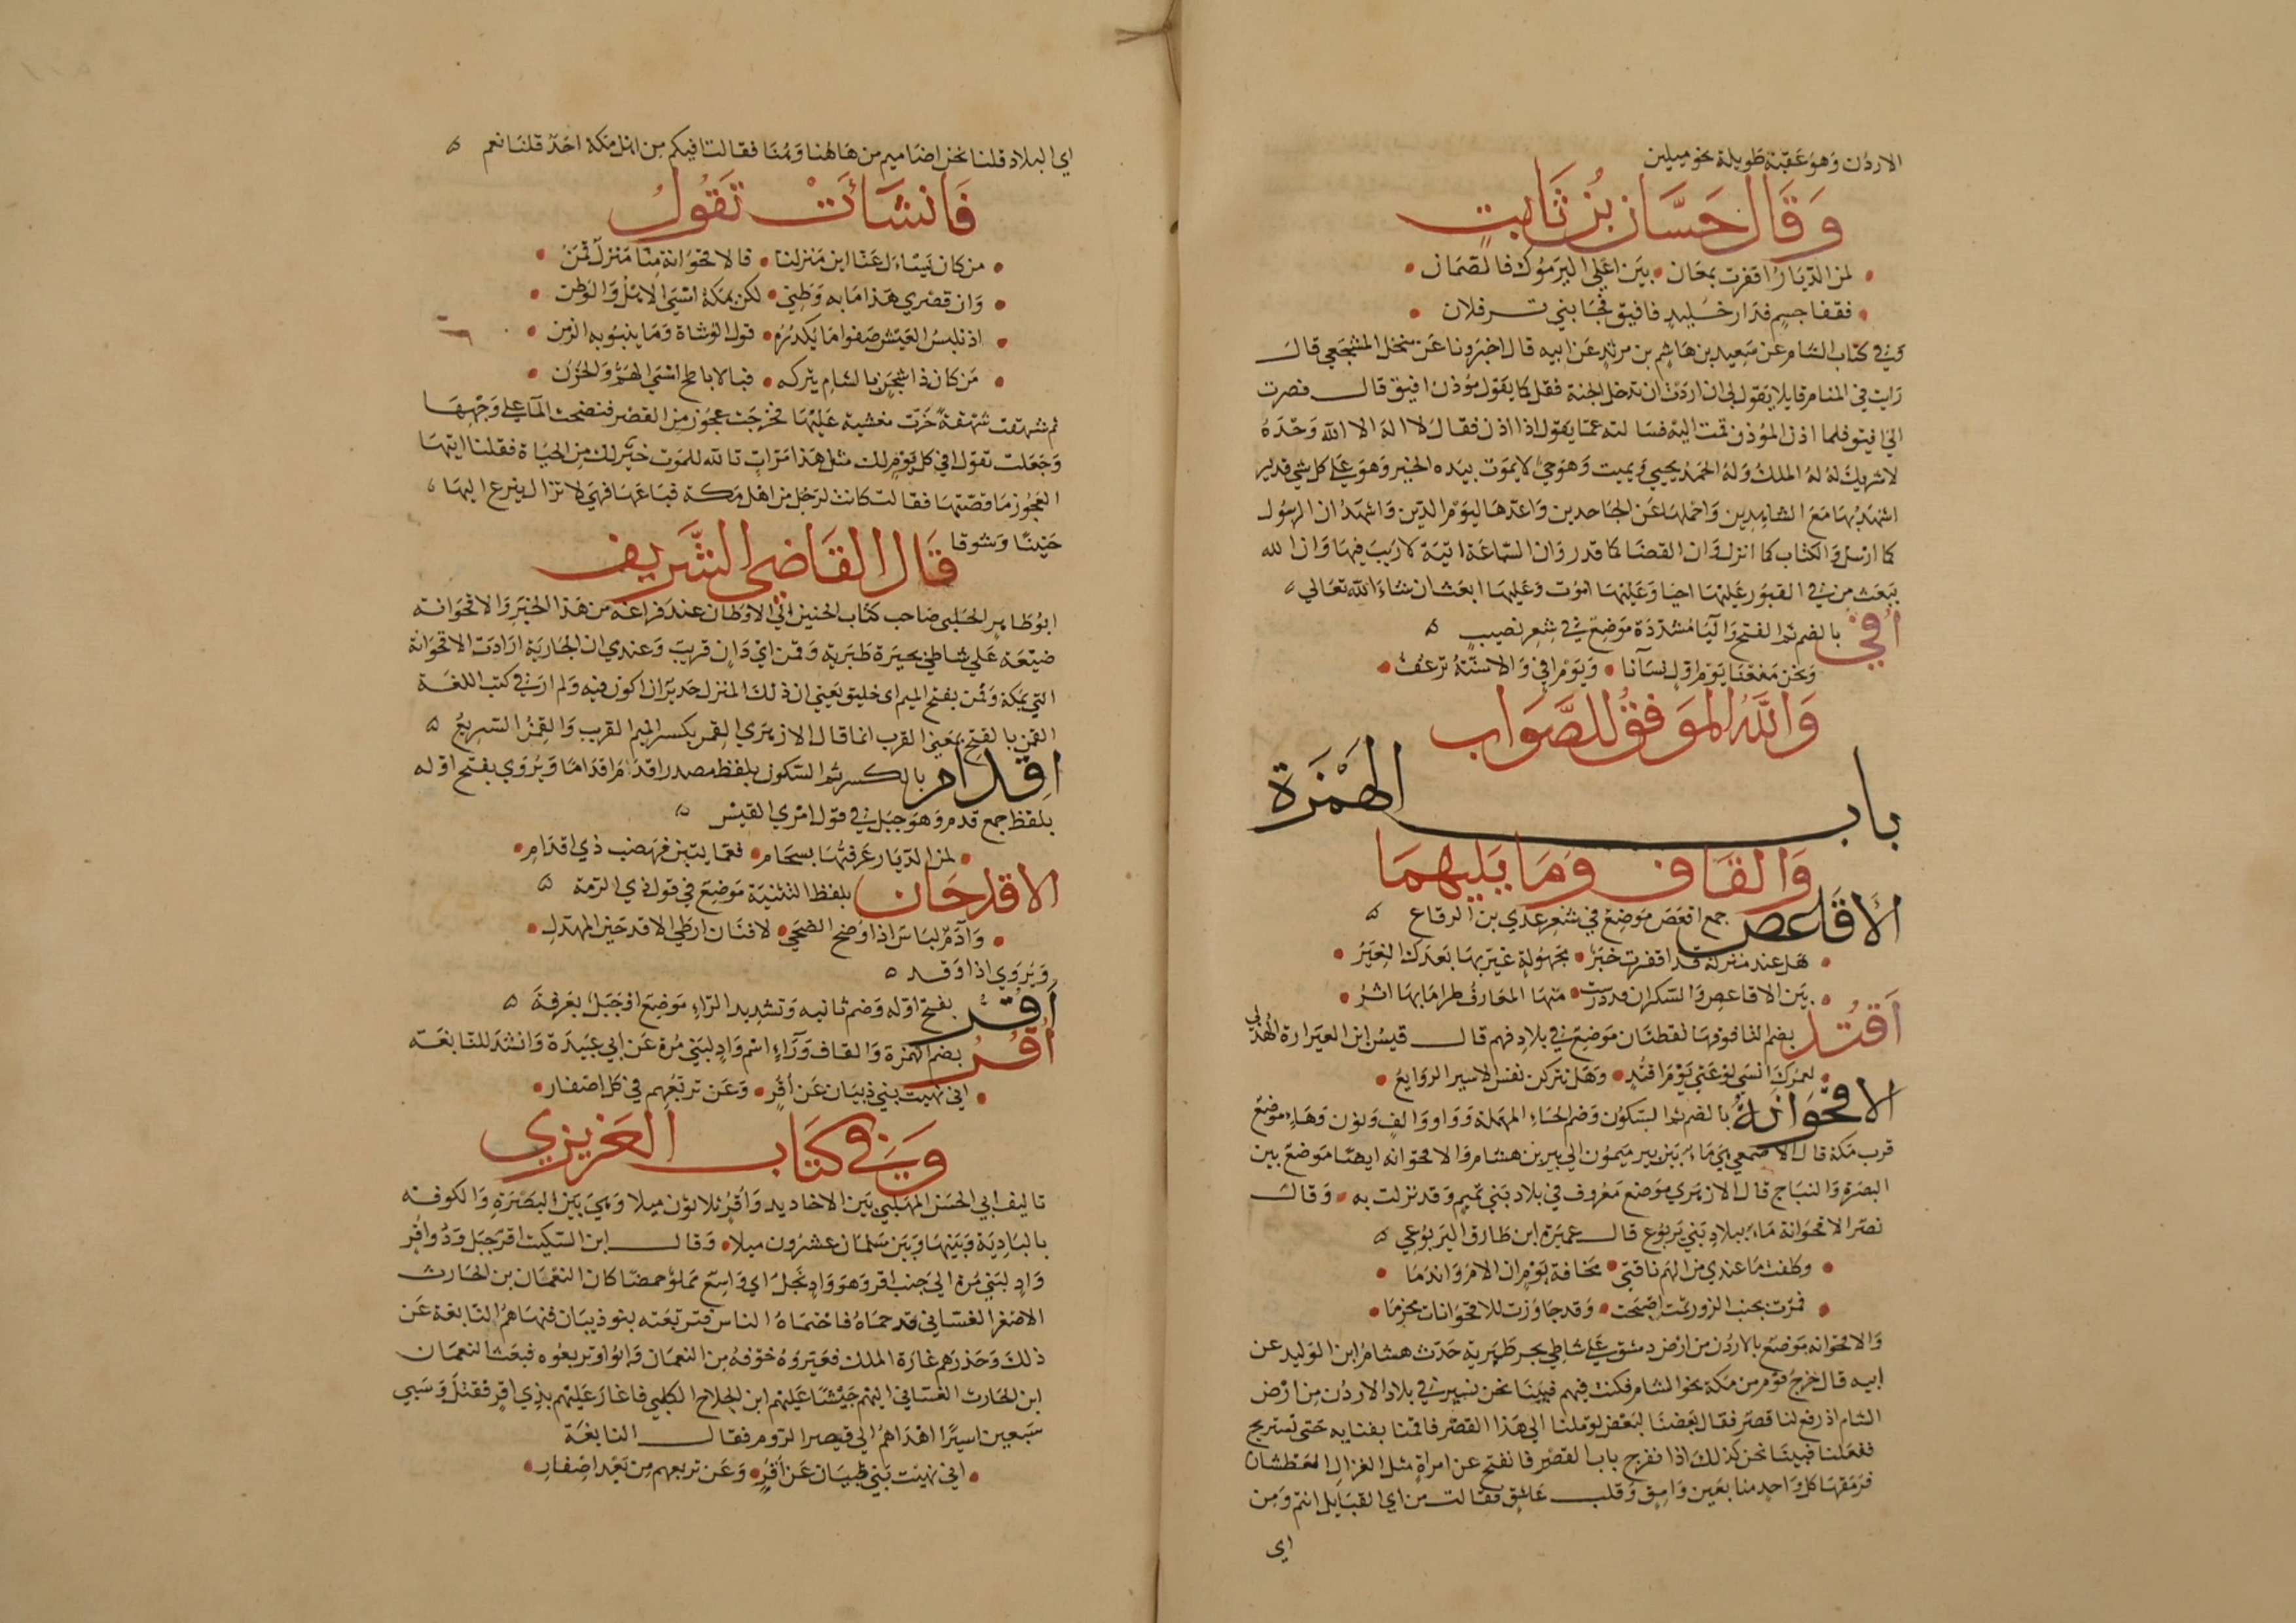 الاردن وهو عقبة طويلة نحو ميلين
وَقَالَ حَسَّان بْن ثَابتٍ
لمن الديار اقفرت بمعان • بين اعلي اليرموك فالصمان •
فقفا جسم فدار خليد فافيق فجانبي ترفلان •
وفي كتاب الشام عن سعيد بن هاشم بن مرثد عن ابيه قال اخبرونا عن منخل المشجعي قال
رايت في المنام قايلا يقول لي ان اردت ان تدخل الجنة فقل كما يقول مؤذن افيق قال فصرت
الي افيق فلما اذن المؤذن قمت اليه فسالته عما يقول اذا اذن فقال لا اله الا الله وحده
لا شريك له له الملك وله الحمد يحيي ويميت وهو حي لا يموت بيده الخير وهو علي كل شي قدير
اشهد بها مع الشاهدين واحملها عن الجاحدين واعدها ليوم الدين واشهد ان الرسول
كما ارسل والكتاب كما انزل وان القضا كما قدر وان الساعة اتية لا ريب فيها وان الله
يبعث من في القبور عليها احيا وعليها اموت وعليها ابعث ان شاء الله تعالي ه
أُفَيّ بالضم ثم الفتح واليا مشددة موضع في شعر نصيب ه
ونحن منعنا يوم اول نسآنا • ويوم افي والاسنة ترعف •
وَاللهُ المُوَفِّقُ للصَّوَاب
باب الهَمْزَة
وَالقَاف وَمَا يَليهِمَا
الأَقَاعص جمع اقعص موضع في شعر عدي بن الرقاع ه
هل عند منزلة قد اقفرت خبر • مجهولة غيرتها بعدك الغير •
بين الاقاعص والسكران قد درست • منها المعارف طرا ما بها اثر •
أَقتُد بضم التا فوقها نقطتان موضع في بلاد فهم قال قيس ابن العيرارة الهذلي
لعمرك انسي لوعتي يوم اقتد • وهل تتركن نفس الاسير الروايع •
الاقْحُوَانَةُ بالضم ثم السكون وضم الحاء المهملة وواو والف ونون وهاء موضع
قرب مكة قال الاصمعي هي ماء بين بير ميمون الي بير بن هشام والاقحوانه ايضا موضع بين
البصرة والنباج قال الازهري موضع معروف في بلاد بني تميم وقد نزلت به • وقال
نصر الاقحوانة ماء ببلاد بني يربوع قال عميرة ابن طارق اليربوعي ه
وكلفت ما عندي من الهم ناقتي • مخافة يوم ان الام واندما •
فمرت بجنب الزور ثمت اصبحت • وقد جاوزت للاقحوانات مخرما •
والاقحوانه موضع بالاردن من ارض دمشق علي شاطي بحر طبرية حدث هشام ابن الوليد عن
ابيه قال خرج قوم من مكة نحو الشام فكنت فيهم فبينا نحن نسير في بلاد الاردن من ارض
الشام اذ رفع لنا قصر فقال بعضنا لبعض لو ملنا الي هذا القصر فاقمنا بفنايه حتي نستريح
ففعلنا فبينا نحن كذلك اذا نفرج باب القصر فانفتح عن امراة مثل الغزال العطشان
فرمقها كل واحد منا بعين وامق وقلب عاشق فقالت من اي القبايل انتم ومن
اي
اي البلاد قلنا نحن اضاميم من هاهنا وهنا فقالت افيكم من اهل مكة احد قلنا نعم ه
فَانشَأَتْ تَقُولُ
من كان يسئال عنا اين منزلنا • فالاقحوانة منا منزل قمن •
وان قصري هذا ما به وطني • لكن بمكة امسي الاهل والوطن •
اذ نلبس العيش صفوا ما يكدره • قول الوشاة وما ينبو به الزمن •
من كان ذا شجن بالشام يتركه • فبالاباطح امسي الهم والحزن •
ثم شهقت شهقة خرت مغشية عليها فخرجت عجوز من القصر فنضحت المآ علي وجهها
وجعلت تقول في كل يوم لك مثل هذا مرات تالله للموت خير لك من الحياة فقلنا ايتها
العجوز ما قصتها فقالت كانت لرجل من اهل مكة فباعها فهي لا تزال ينزع اليها
حنينا وشوقا قَالَ القَاضِي الشَّريف
ابو طاهر الحلبي صاحب كتاب الحنين الي الاوطان عند فراغه من هذا الخبر والاقحوانه
ضيعة علي شاطي بحيرة طبرية وقمن اي دان قريب وعندي ان الجارية ارادت الاقحوانة
التي بمكة وقمن بفتح الميم اي خليق يعني ان ذلك المنزل جدير ان اكون فيه ولم ار في كتب اللغة
القمن بالفتح بمعني القرب انما قال الازهري القمن بكسر الميم القرب والقمن السريع ه
اقدَام بالكسر ثم السكون بلفظ مصدر اقدم اقداما ويروي بفتح اوله
بلفظ جمع قدم وهو جبل في قول امري القيس ه
لمن الديار عرفتها بسحام • فعمايتين فهضب ذي اقدام •
الاقدحَان بلفظ التثنية موضع في قول ذي الرمة ه
وآدم لباس اذا وضح الضحي • لافنان ارطي الاقدحين المهدل •
ويروي اذا وقد ه
أَقُرّ بفتح اوله وضم ثانيه وتشديد الراء موضع او جبل بعرفة ه
أُقُر بضم الهمزة والقاف وراء اسم واد لبني مرة عن ابي عبيدة وانشد للنابغة
اني نهيت بني ذبيان عن أقر • وعن تربعهم في كل اصفار •
وَفي كتَاب العَزيزي
تاليف ابي الحسن المهلبي بين الاخاديد واقر ثلاثون ميلا وهي بين البصرة والكوفه
بالبادية وبينها وبين سلمان عشرون ميلا • وقال ابن السكيت اقر جبل وذو أقر
واد لبني مرة الي جنب اقر وهو واد نجل اي واسع مملو حمضا كان النعمان بن الحارث
الاصغر الغساني قد حماه فاحتماه الناس فتربعته بنو ذبيان فنهاهم النابغة عن
ذلك وحذرهم غارة الملك فعيروه خوفه من النعمان وابوا وتربعوه فبعث النعمان
ابن الحارث الغساني اليهم جيشا عليهم ابن الجلاح الكلبي فاغار عليهم بذي اقر فقتل وسبي
سبعين اسيرا اهداهم الي قيصر الروم فقال النابغة
اني نهيت بني ظبيان عن أقر • وعن تربعهم من بعد اصفار •